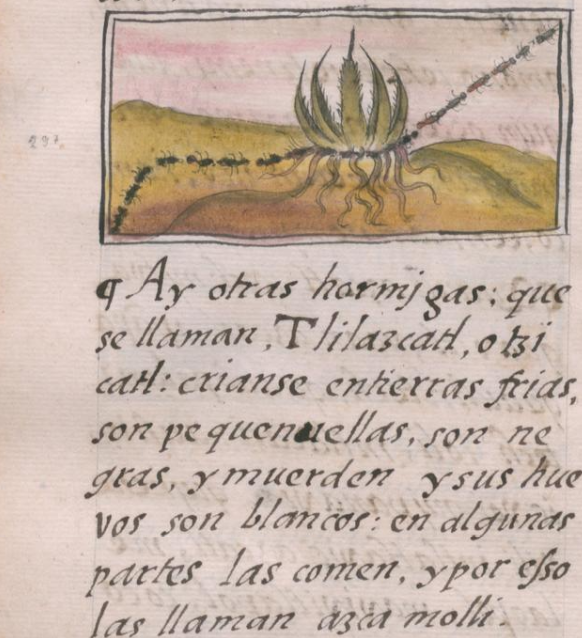 297.
¶ Ay otras hormjgas: que
se llaman, Tlilazcatl, o tzi
catl: crianse entierras frias,
son pequenuellas, son ne
gras, y muerden y sus hue
vos son blancos: en algunas
partes las comen, y por esso
las llaman azca molli.